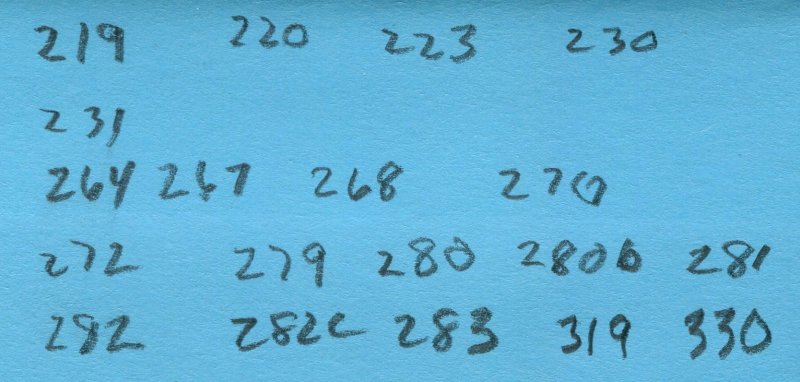 219 220 223 230
231
264 267 268 270
272 279 280 280b 281
282 282c 283 319 330